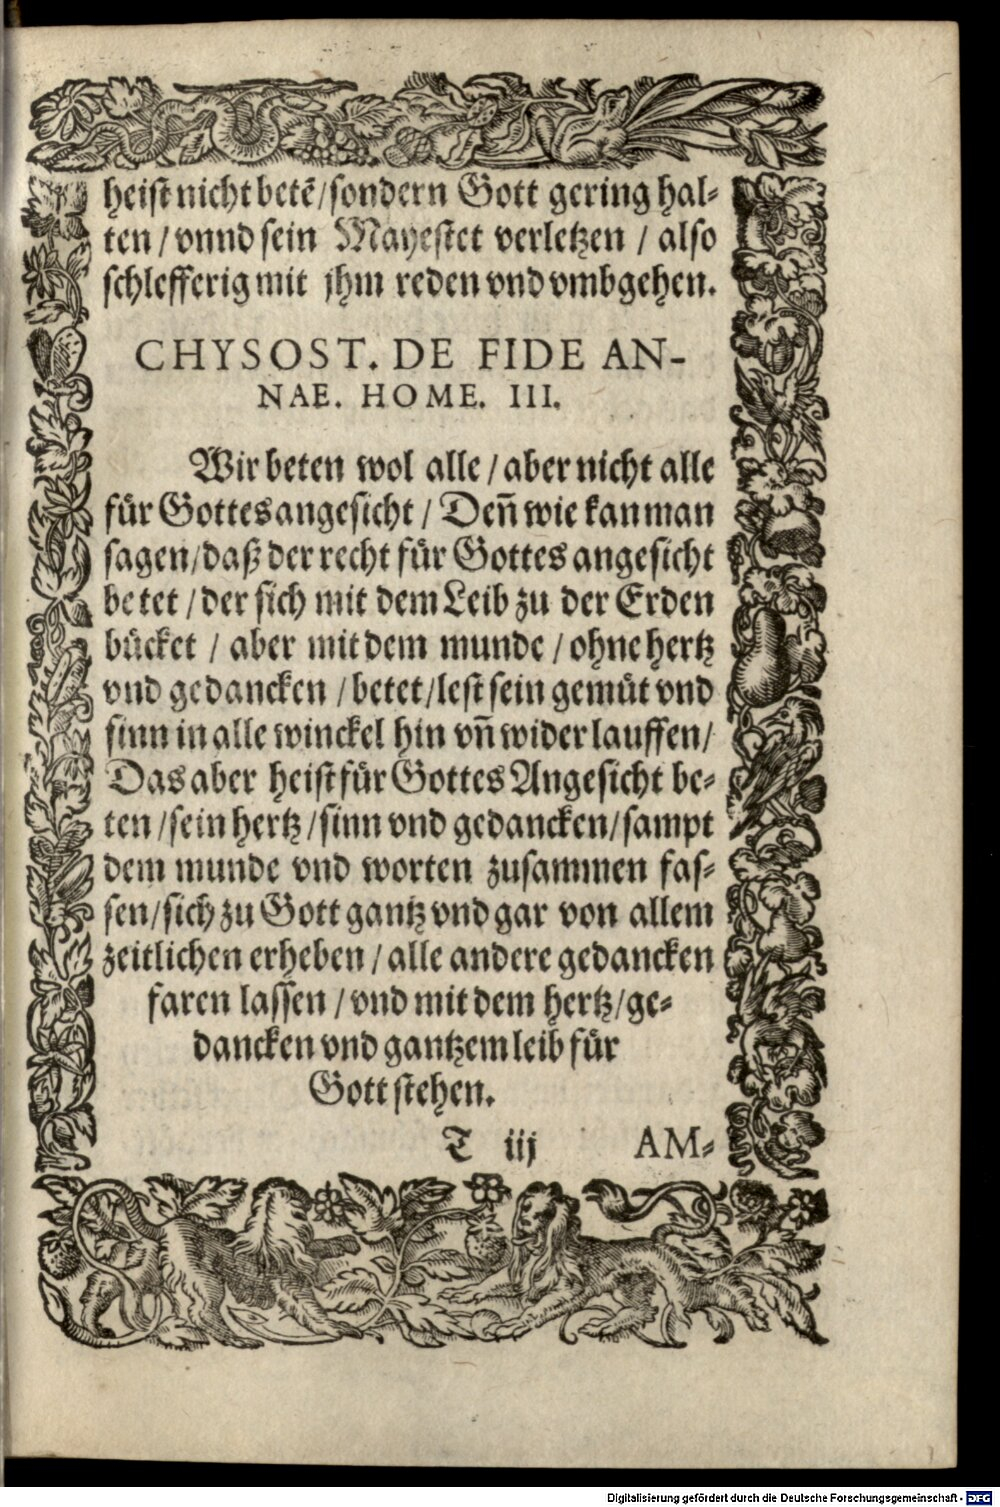 heist nicht betē/sondern Gott gering hal-
ten/vnnd sein Mayestet verletzen/also
schlefferig mit jhm reden vnd vmbgehen.
CHYSOST. DE FIDE AN-
NAE. HOME. III.
Wir beten wol alle/aber nicht alle
für Gottes angesicht/Deñ wie kan man
sagen/daß der recht für Gottes angesicht
betet/der sich mit dem Leib zu der Erden
bücket/aber mit dem munde/ohne hertz
vnd gedancken/betet/lest sein gemüt vnd
sinn in alle winckel hin vñ wider lauffen/
Das aber heist für Gottes Angesicht be-
ten/sein hertz/sinn vnd gedancken/sampt
dem munde vnd worten zusammen fas-
sen/sich zu Gott gantz vnd gar von allem
zeitlichen erheben/alle andere gedancken
faren lassen/vnd mit dem hertz/ge-
dancken vnd gantzem leib für
Gott stehen.
T iij AM-
Digitalisierung gefördert durch die Deutsche Forschungsgemeinschaft - DFG